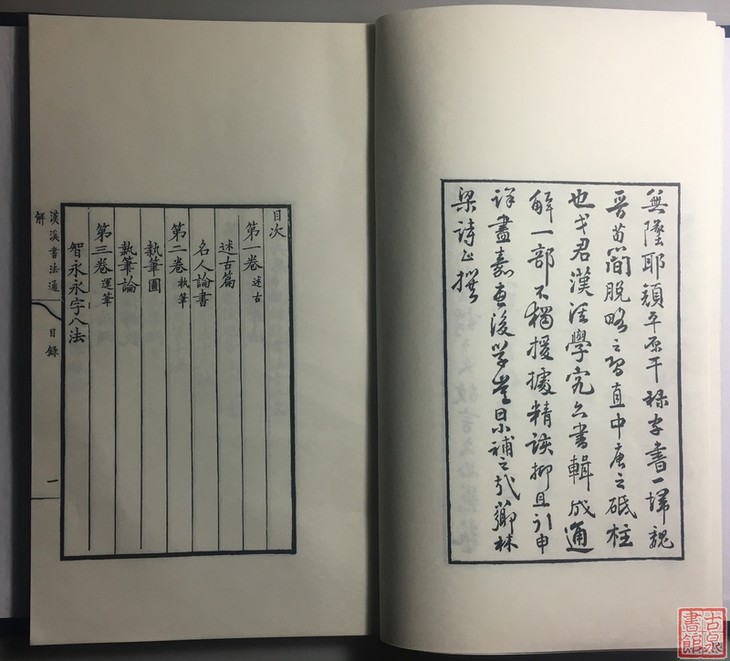 無墜耶顏平原干祿字書一埽魏
晉苟簡脫略之習直中唐之砥柱
也戈君漢溪學究六書輯成通
解一部不獨援據精該抑且引申
詳盡嘉惠後學豈曰小補之哉薌林
梁詩正撰
目次
第一卷 述古
述古篇
名人論書
第二卷 執筆
執筆圖
執筆論
第三卷 運筆
智永永字八法
漢溪書法通解
目錄
一
古泉書館